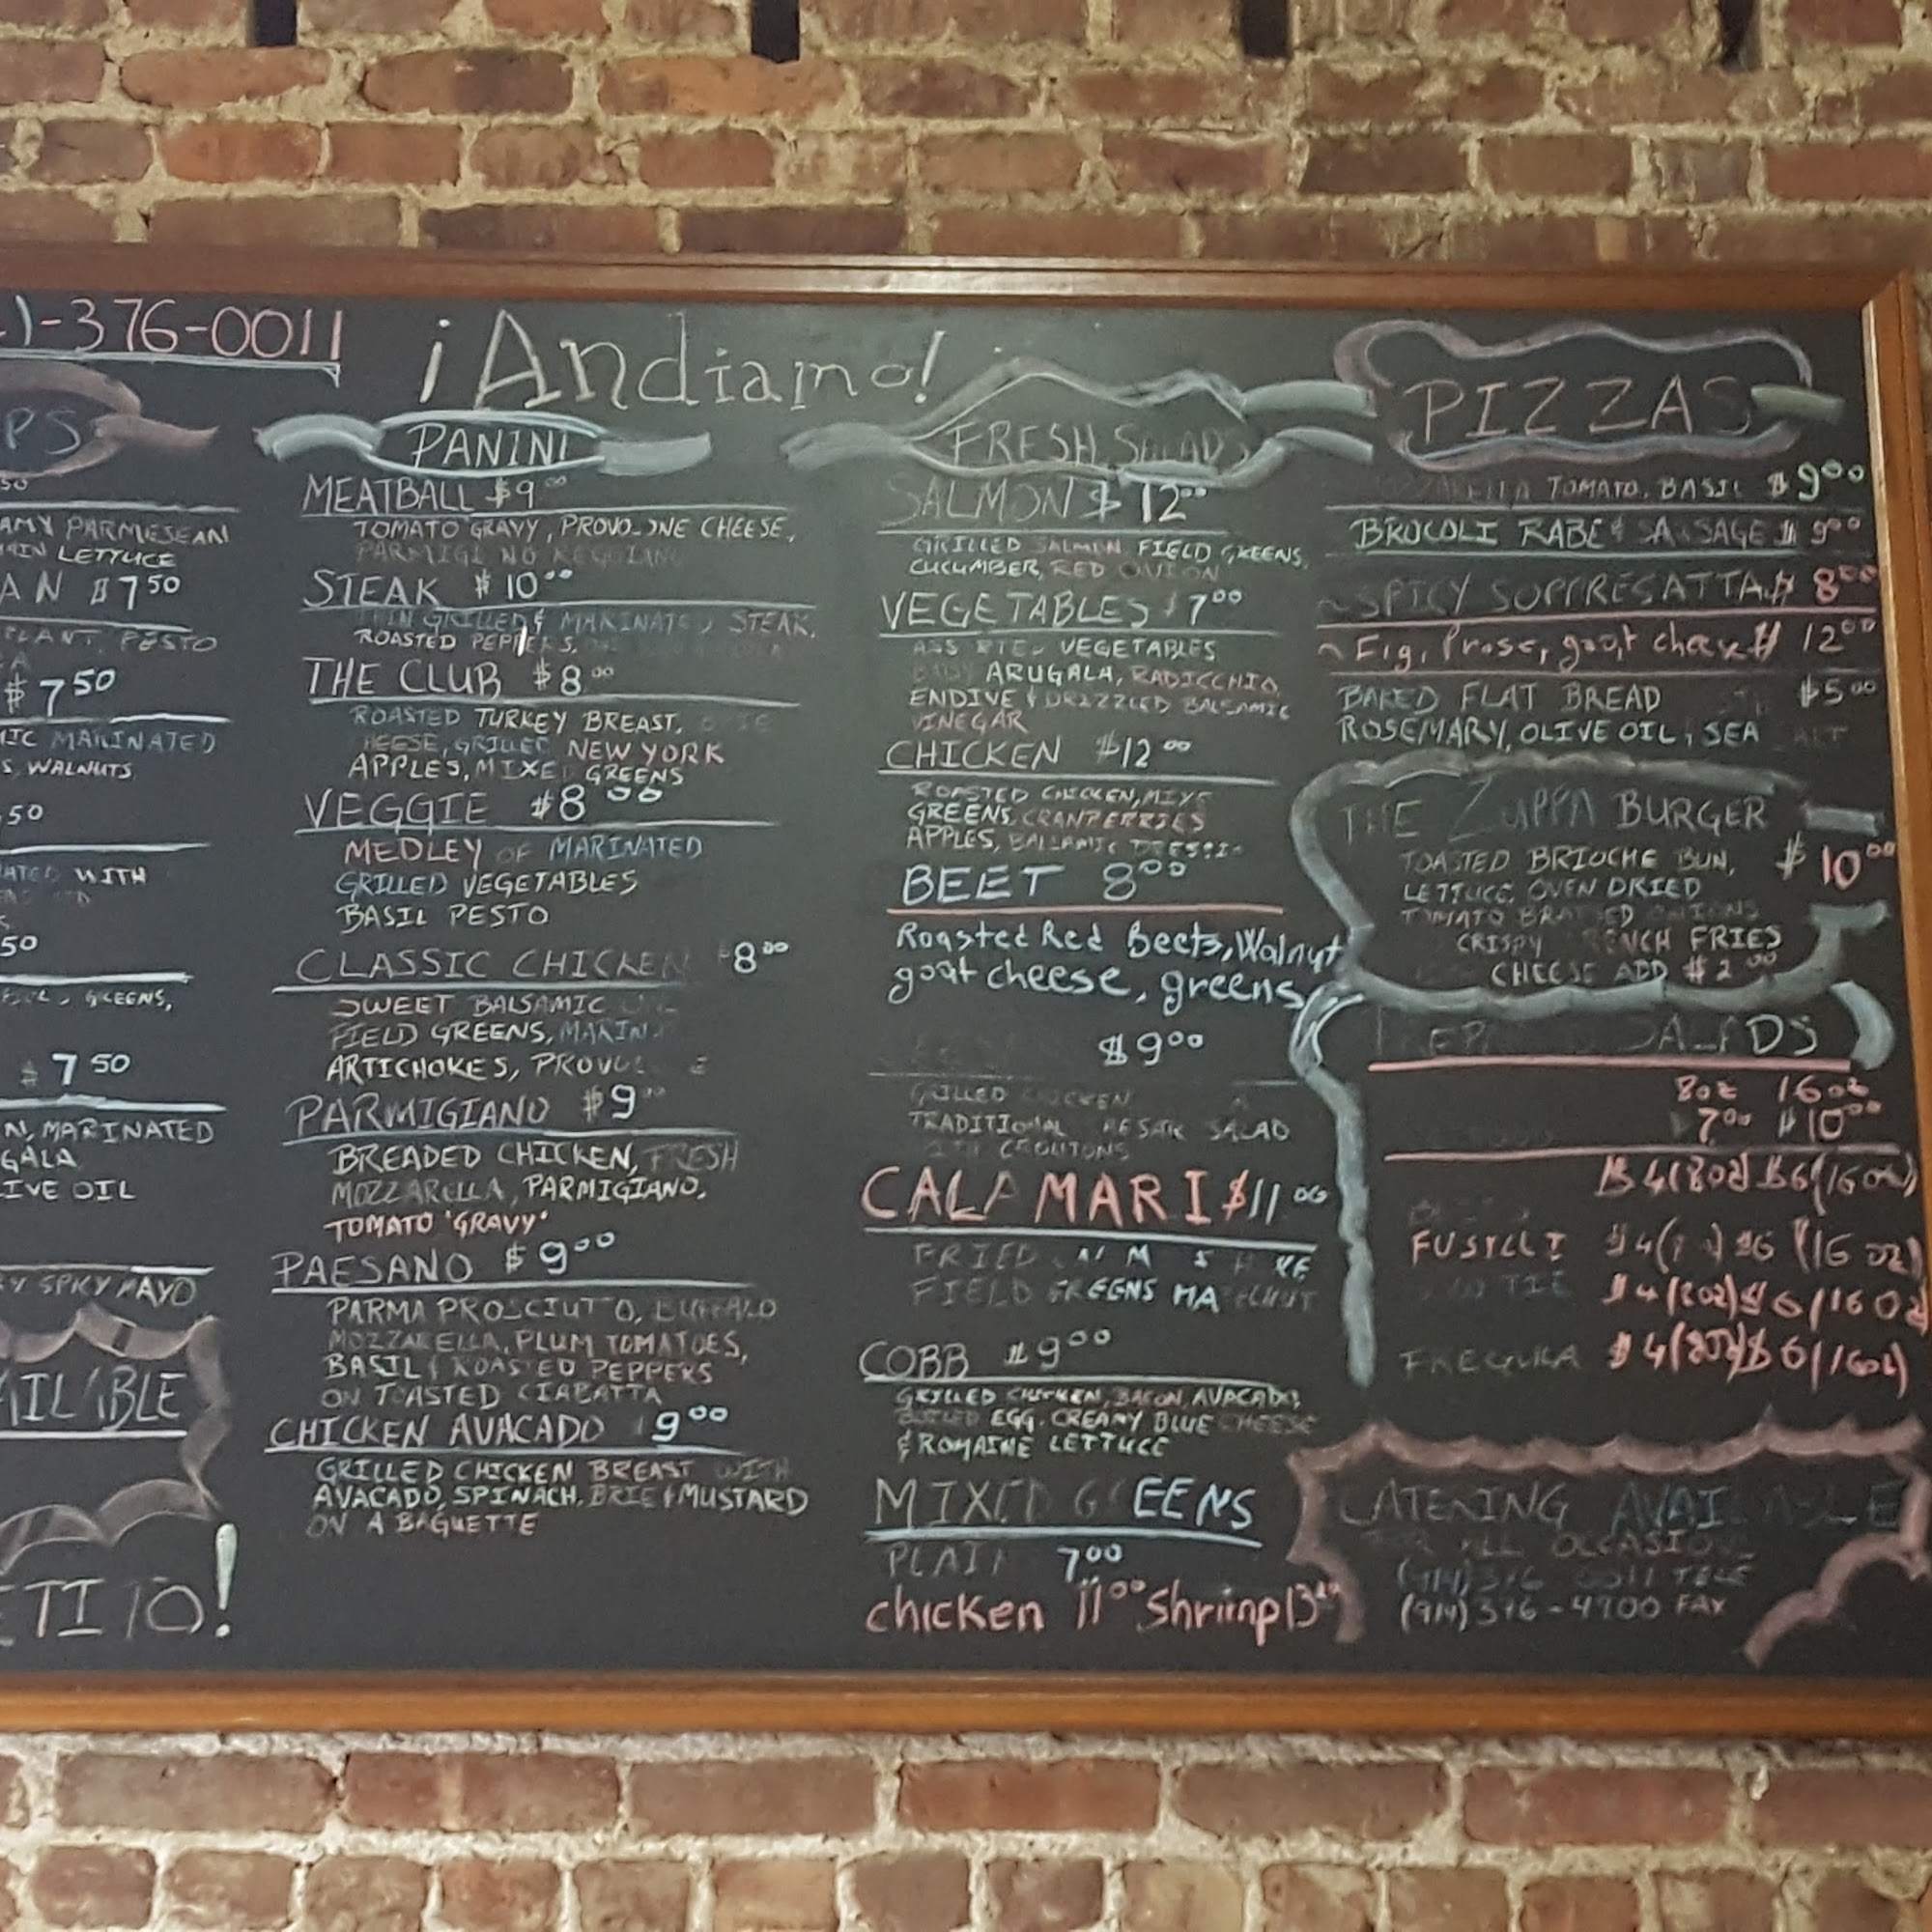 1-376-0011
¡Andiamo!
PS
50
AMY PARMESEAN
LETTUCE
AN $7 50
PLANT, PESTO
$7 50
MIC MARINATED
S, WALNUTS
50
ATED WITH
50
GREENS,
$7 50
N, MARINATED
GALA
IVE OIL
Y SPICY MAYO
AILABLE
ETITO!
PANINI
MEATBALL $9 00
TOMATO GRAVY, PROVOLONE CHEESE,
PARMIGIANO REGGIANO
STEAK $10 00
THIN GRILLED & MARINATED STEAK,
ROASTED PEPPERS,
THE CLUB $8 00
ROASTED TURKEY BREAST,
CHEESE, GRILLED NEW YORK
APPLES, MIXED GREENS
VEGGIE $8 00
MEDLEY OF MARINATED
GRILLED VEGETABLES
BASIL PESTO
CLASSIC CHICKEN $8 00
SWEET BALSAMIC
FIELD GREENS, MARIN
ARTICHOKES, PROVOLONE
PARMIGIANO $9 00
BREADED CHICKEN, FRESH
MOZZARELLA, PARMIGIANO,
TOMATO "GRAVY"
PAESANO $9 00
PARMA PROSCIUTTO, BUFFALO
MOZZARELLA, PLUM TOMATOES,
BASIL & ROASTED PEPPERS
ON TOASTED CIABATTA
CHICKEN AVACADO $9 00
GRILLED CHICKEN BREAST WITH
AVACADO, SPINACH, BRIE & MUSTARD
ON A BAGUETTE
FRESH SALADS
SALMON $12 00
GRILLED SALMON FIELD GREENS,
CUCUMBER, RED ONION
VEGETABLES $7 00
ASSORTED VEGETABLES
BABY ARUGALA, RADICCHIO
ENDIVE & DRIZZLED BALSAMIC
VINEGAR
CHICKEN $12 00
ROASTED CHICKEN, MIXE
GREENS, CRANBERRIES
APPLES, BALSAMIC DRESSIN
BEET 8 00
Roasted Red Beets, Walnut
goat cheese, greens
$9 00
GRILLED CHICKEN
TRADITIONAL CAESAR SALAD
WITH CROUTONS
CALAMARI $11 00
FRIED
FIELD GREENS
COBB $9 00
GRILLED CHICKEN, BACON, AVACADO,
BOILED EGG, CREAMY BLUE CHEESE
& ROMAINE LETTUCE
MIXED GREENS
PLAIN 7 00
chicken 11 00 Shrimp 13 00
PIZZAS
MOZZARELLA TOMATO, BASIL $9 00
BROCOLI RABE & SAUSAGE $9 00
~SPICY SOPPRESATTA $ 8 00
~Fig, Prosc, goat cheese $ 12 00
BAKED FLAT BREAD $5 00
ROSEMARY, OLIVE OIL, SEA SALT
THE ZUPPA BURGER
TOASTED BRIOCHE BUN, $10 00
LETTUCE, OVEN DRIED
TOMATO BRAISED ONIONS
CRISPY FRENCH FRIES
CHEESE ADD $2 00
PREPARED SALADS
8oz 16oz
7 00 $10 00
$4(8oz) $6(16oz)
FUSILLI $4(8oz) $6 (16 oz)
BOW TIE $4(8oz) $6(16 oz)
FREGULA $4(8oz) $6(16oz)
CATERING AVAILABLE
FOR ALL OCCASIONS
(914) 376 0011 TELE
(914) 376-4900 FAX